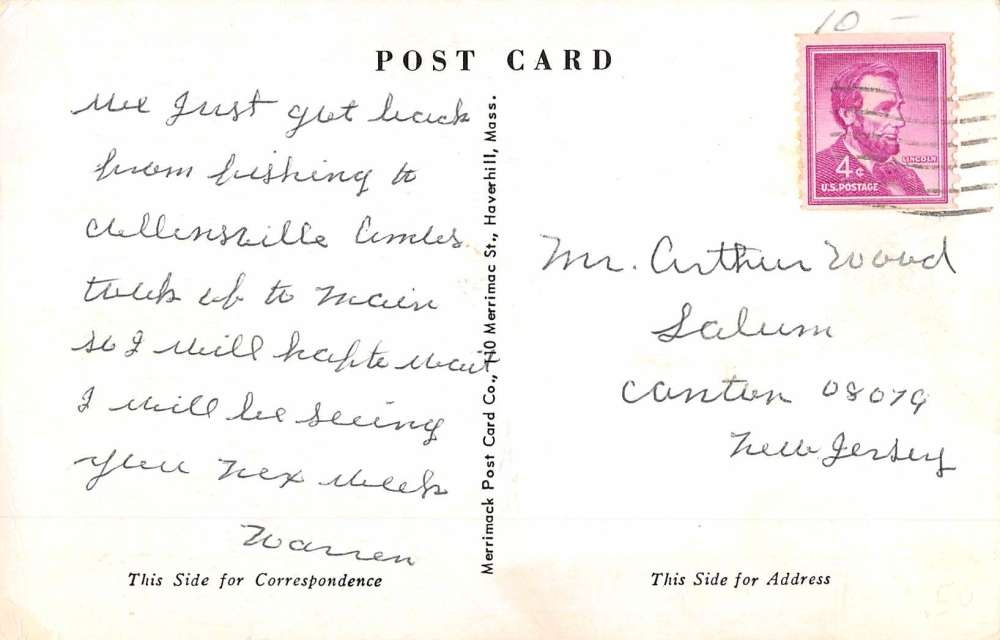 10 -
POST CARD
LINCOLN
4¢
U.S. POSTAGE
We Just got back
from fishing to
took us to Main
so I will hafte wait
I will be seeing
you nex week
Warren
This Side for Correspondence
Merrimack Post Card Co., 110 Merrimac St., Haverhill, Mass.
Mr. Arthur Wood
Salum
Canton 08079
New Jersey
This Side for Address
50